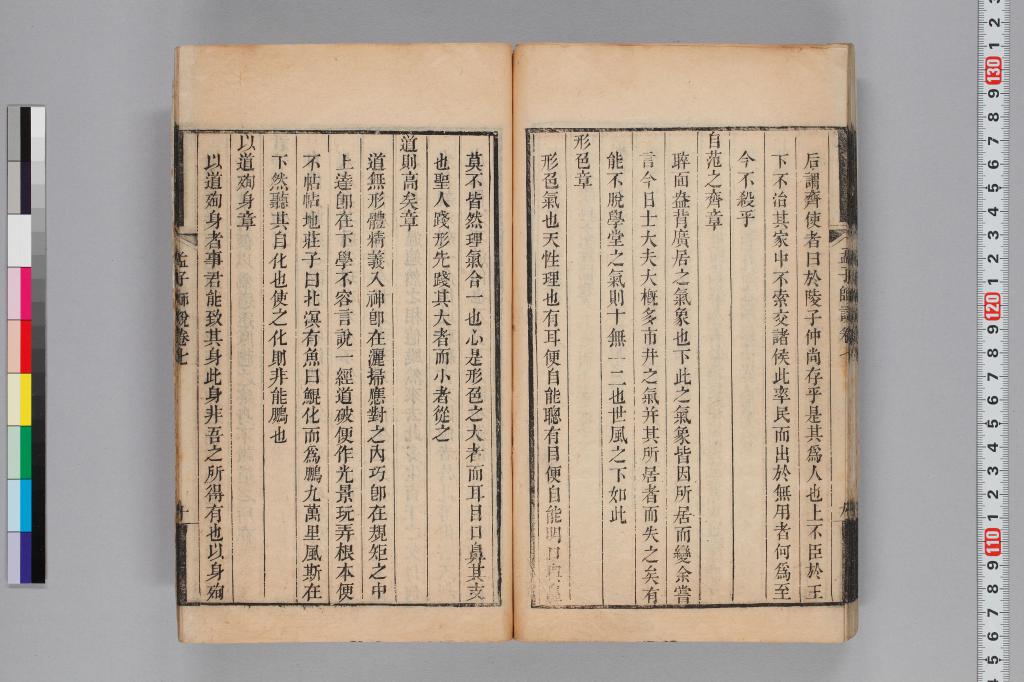 后謂齊使者曰於陵子仲尚存乎是其爲人也上不臣於王
下不治其家中不索交諸侯此率民而出於無用者何爲至
今不殺乎
自范之齊章
睟面盎背廣居之氣象也下此之氣象皆因所居而變余嘗
言今日士大夫大槪多市井之氣并其所居者而失之矣有
能不脫學堂之氣則十無一二也世風之下如此
形色章
形色氣也天性理也有耳便自能聰有目便自能明口與鼻
莫不皆然理氣合一也心是形色之大者而耳目口鼻其支
也聖人踐形先踐其大者而小者從之
道則高矣章
道無形體精義入神卽在灑掃應對之內巧卽在規矩之中
上達卽在下學不容言說一經道破便作光景玩弄根本便
不帖帖地莊子曰北溟有魚曰鯤化而爲鵬九萬里風斯在
下然聽其自化也使之化則非能鵬也
以道殉身章
以道殉身者事君能致其身此身非吾之所得有也以身殉
孟子師說卷七
十